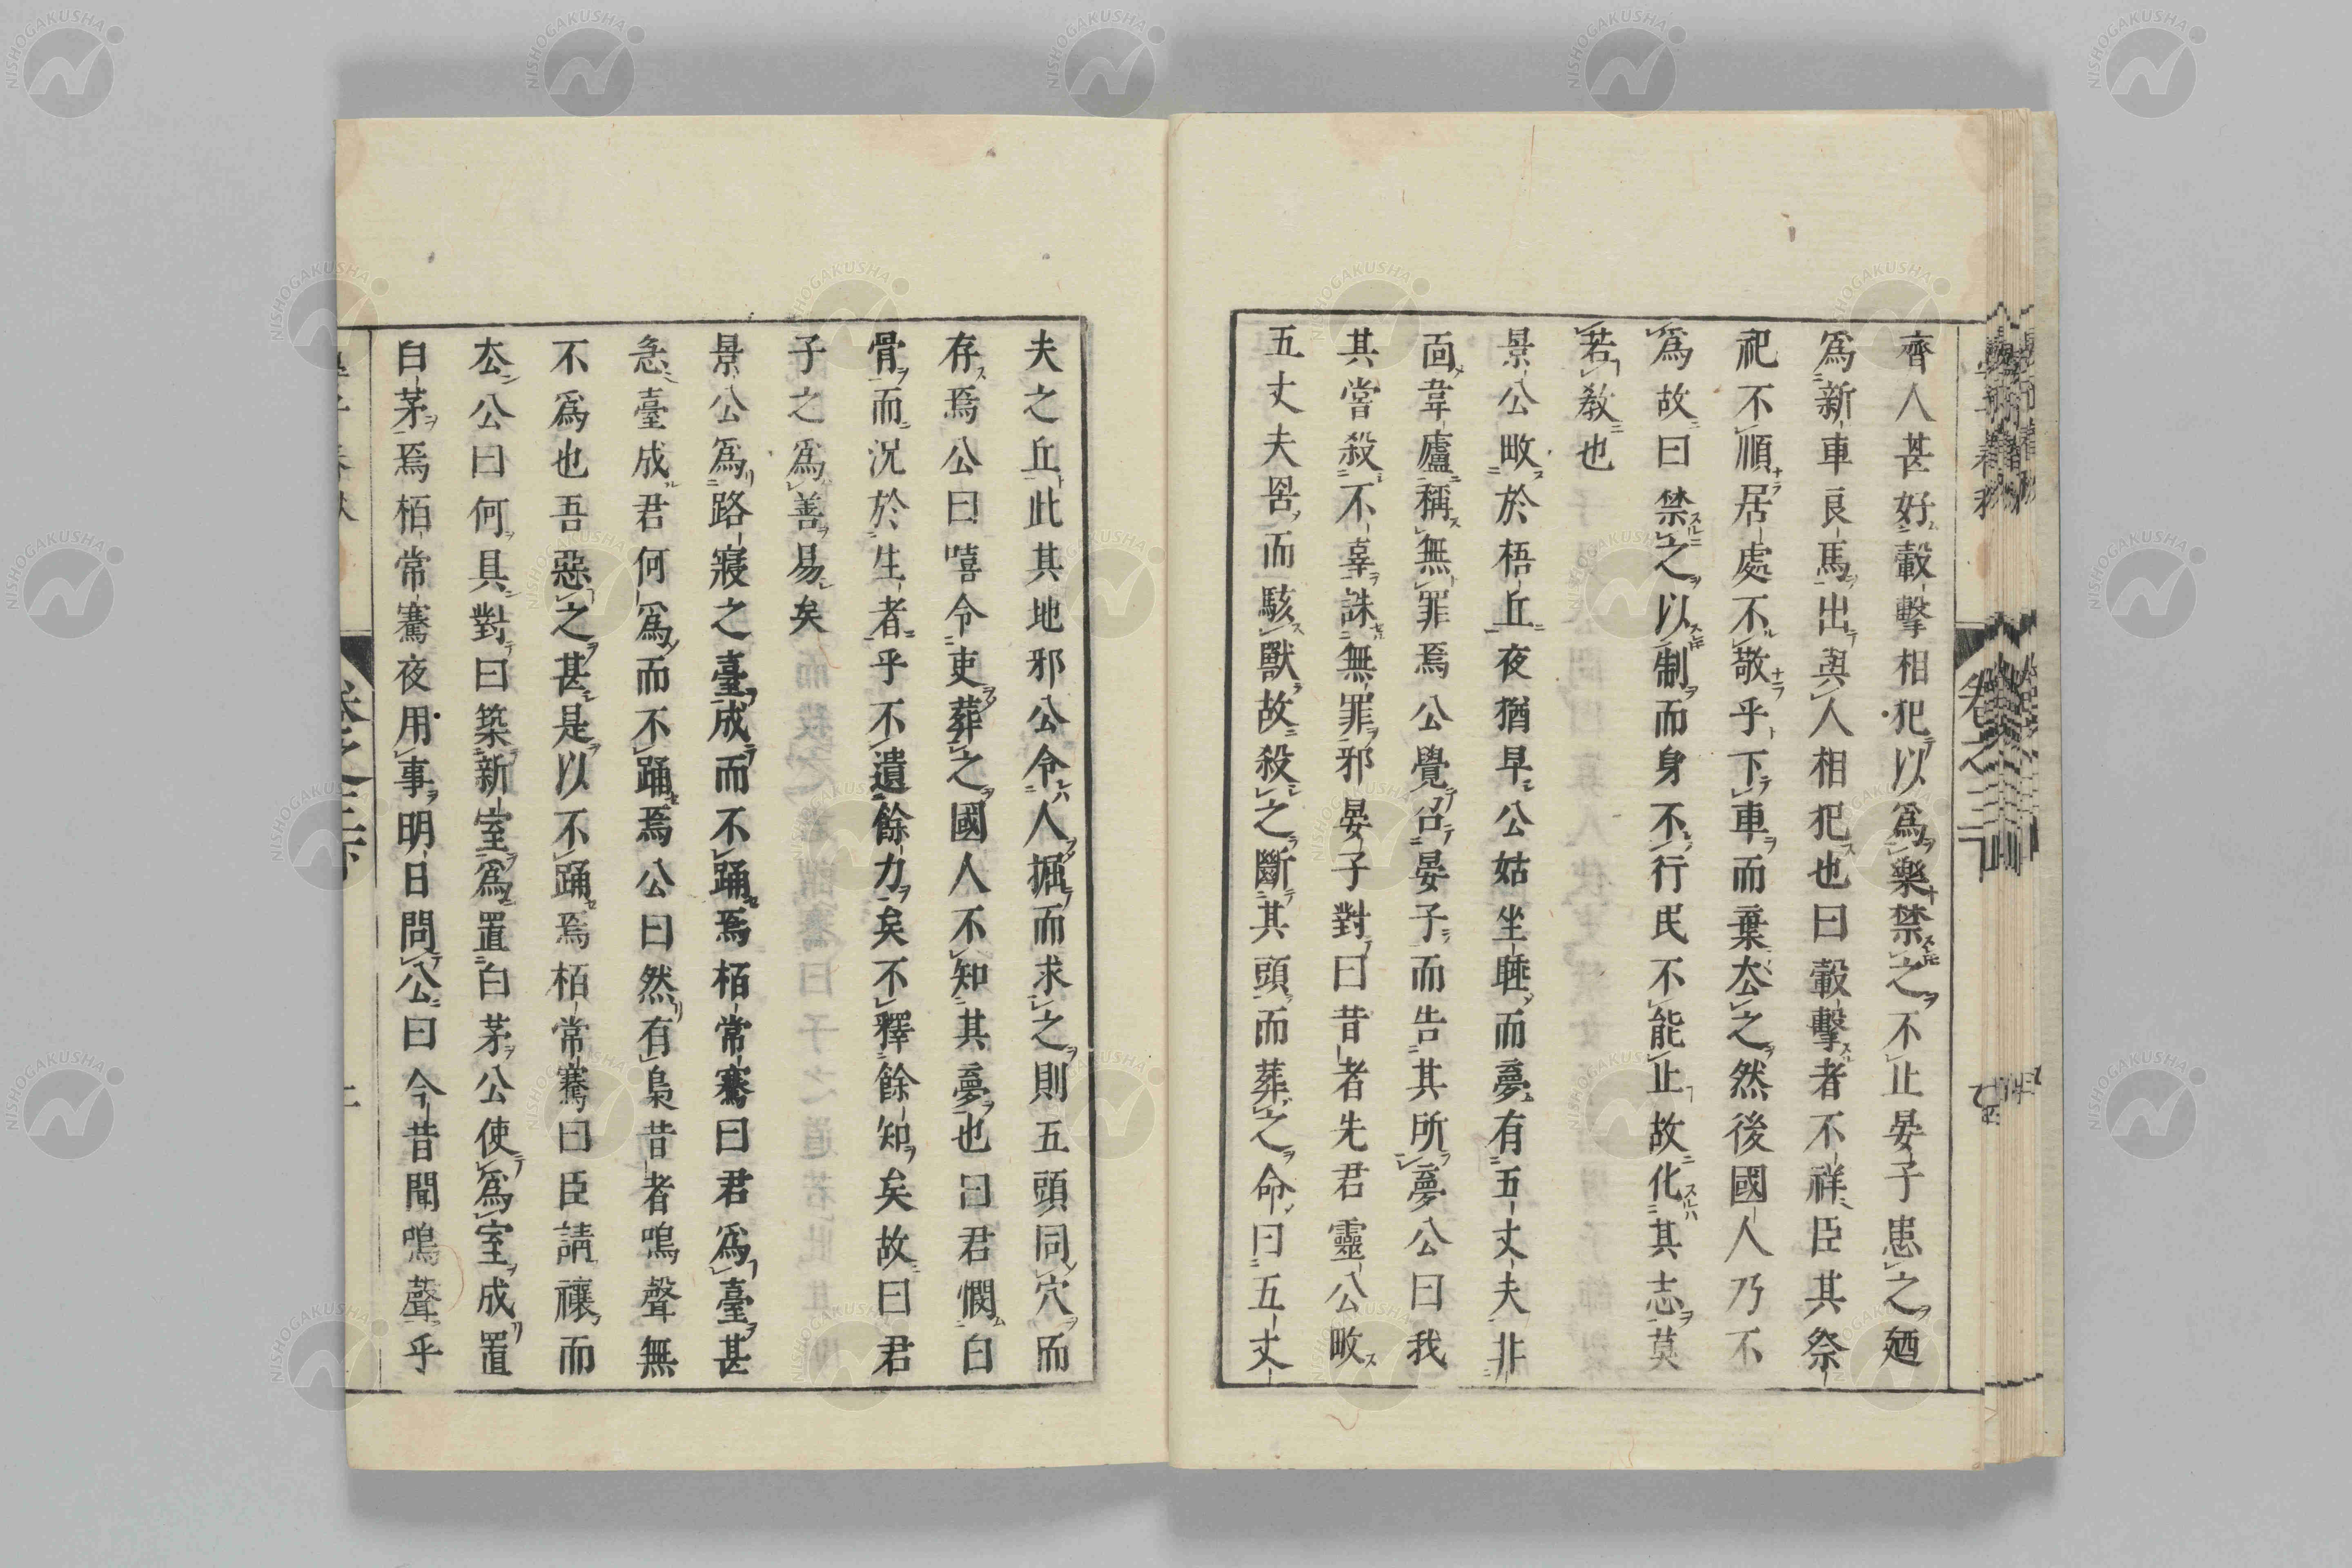 齊人甚好轂擊相犯以爲樂禁之不止晏子患之廼
爲新車良馬出與人相犯也曰轂擊者不祥臣其祭
祀不順居處不敬乎下車而棄厺之然後國人乃不
爲故曰禁之以制而身不行民不能止故化其志莫
若敎也
景公畋於梧丘夜猶早公姑坐睡而夢有五丈夫非
靣韋廬稱無罪焉公覺召晏子而告其所夢公曰我
其甞殺不辜誅無罪邪晏子對曰昔者先君靈公畋
五丈夫罟而駭獸故殺之斷其頭而葬之命曰五丈
夫之丘此其地邪公令人掘而求之則五頭同穴而
存焉公曰嘻令吏葬之國人不知其夢也曰君憫白
骨而況於生者乎不遺餘力矣不釋餘知矣故曰君
子之爲善易矣
景公爲路寢之臺成而不踊焉栢常騫曰君爲臺甚
急臺成君何爲而不踊焉公曰然有梟昔者鳴聲無
不爲也吾惡之甚是以不踊焉栢常騫曰臣請禳而
厺公曰何具對曰築新室爲置白茅公使爲室成置
白茅焉栢常騫夜用事明日問公曰今昔聞鳴聲乎